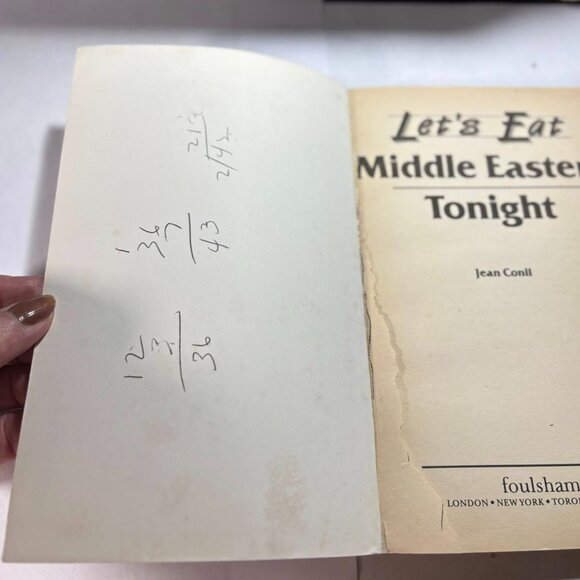 12
3
36
1
36
7
43
21
2/43
Let's Eat
Middle Easter
Tonight
Jean Conil
foulsham
LONDON • NEW YORK • TORO